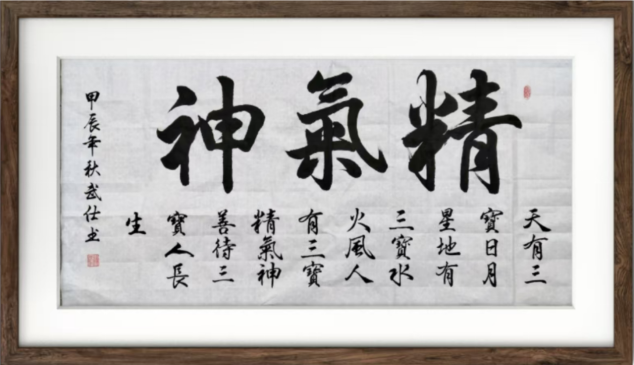 精氣神
天有三
寶日月
星地有
三寶水
火風人
有三寶
精氣神
善待三
寶人長
生
甲辰年秋武仕书